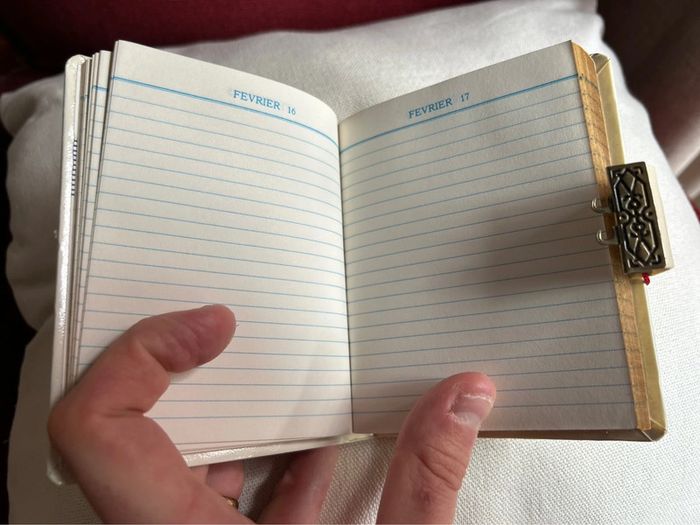 FEVRIER 16
FEVRIER 17